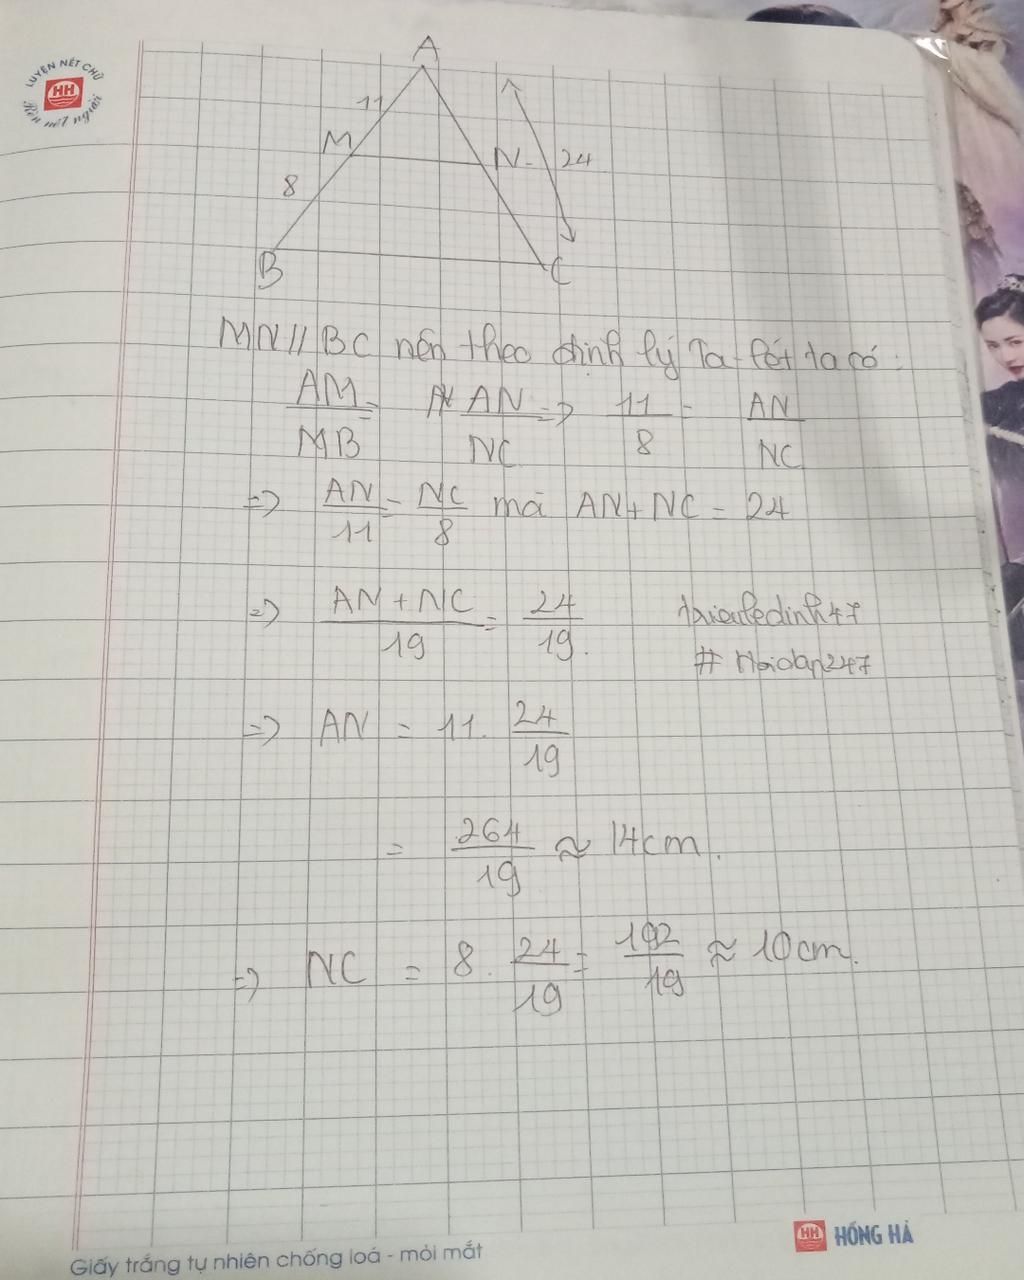 LUYỆN NÉT CHỮ
HH
Rèn nết người
A
11
M
N
24
8
B
C
MN // BC nên theo định lý Ta-lét ta có:
AM/MB = AN/NC => 11/8 = AN/NC
=> AN/11 = NC/8 mà AN + NC = 24
=> (AN + NC)/19 = 24/19.
#Hoidap247
=> AN = 11. 24/19
= 264/19 ≈ 14cm.
=> NC = 8. 24/19 = 192/19 ≈ 10cm.
HH HỒNG HÀ
Giấy trắng tự nhiên chống loá - mỏi mắt